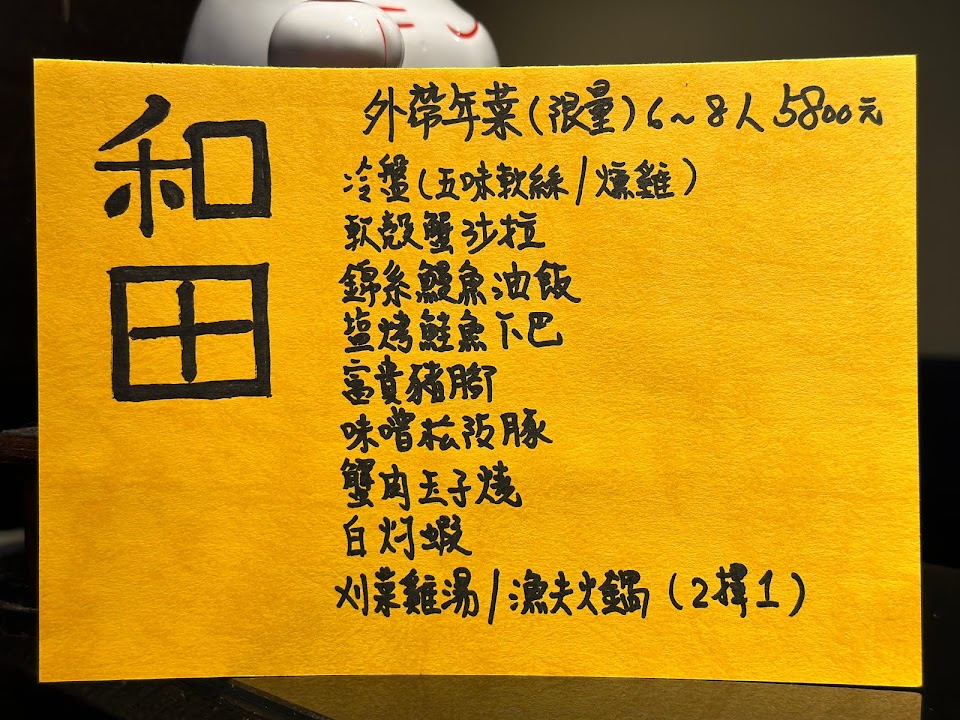 和田
外帶年菜(限量)6~8人5800元
冷盤(五味軟絲/燻雞)
軟殼蟹沙拉
錦糸鰻魚油飯
塩烤鮭魚下巴
富貴豬腳
味噌松阪豚
蟹肉玉子燒
白灼蝦
刈菜雞湯/漁夫火鍋(2擇1)